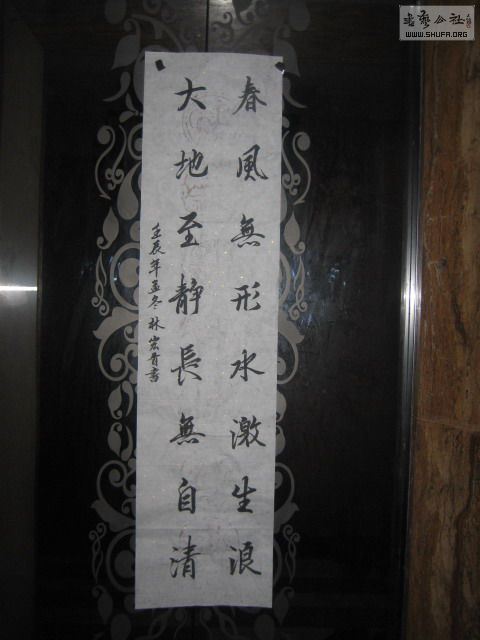 春風無形水激生浪
大地至靜長無自清
壬辰年孟冬林宏青書
书艺公社
WWW.SHUFA.ORG